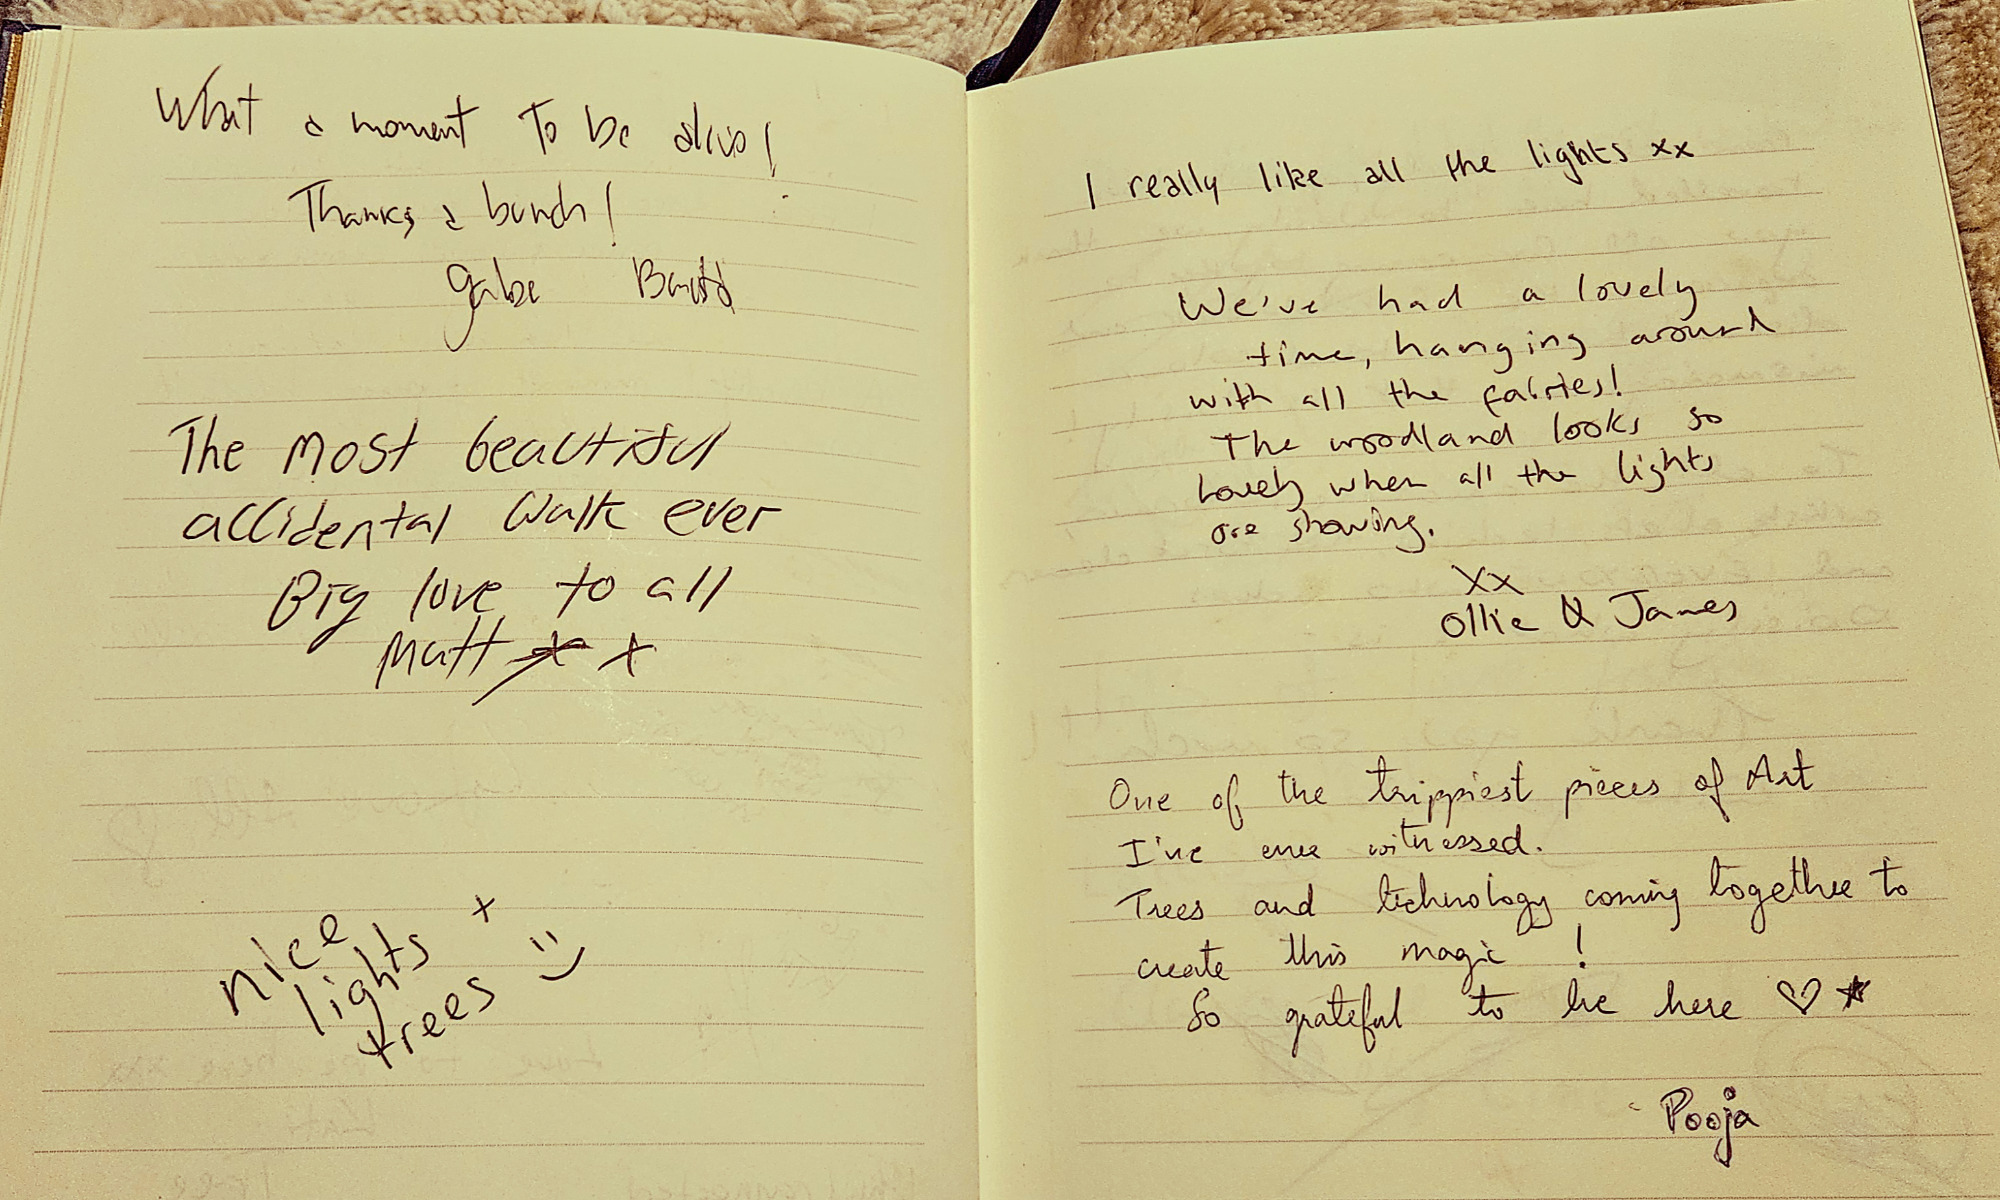 What a moment To be alive!
Thanks a bunch!
Gabe
The most beautiful
accidental walk ever
Big love to all
Matt x x
nice
lights +
trees :)
I really like all the lights xx
We've had a lovely
time, hanging around
with all the fairies!
The woodland looks so
lovely when all the lights
are showing.
Xx
Ollie & James
One of the trippiest pieces of Art
I've ever witnessed.
Trees and technology coming together to
create this magic !
So grateful to be here ♡ ☆
- Pooja